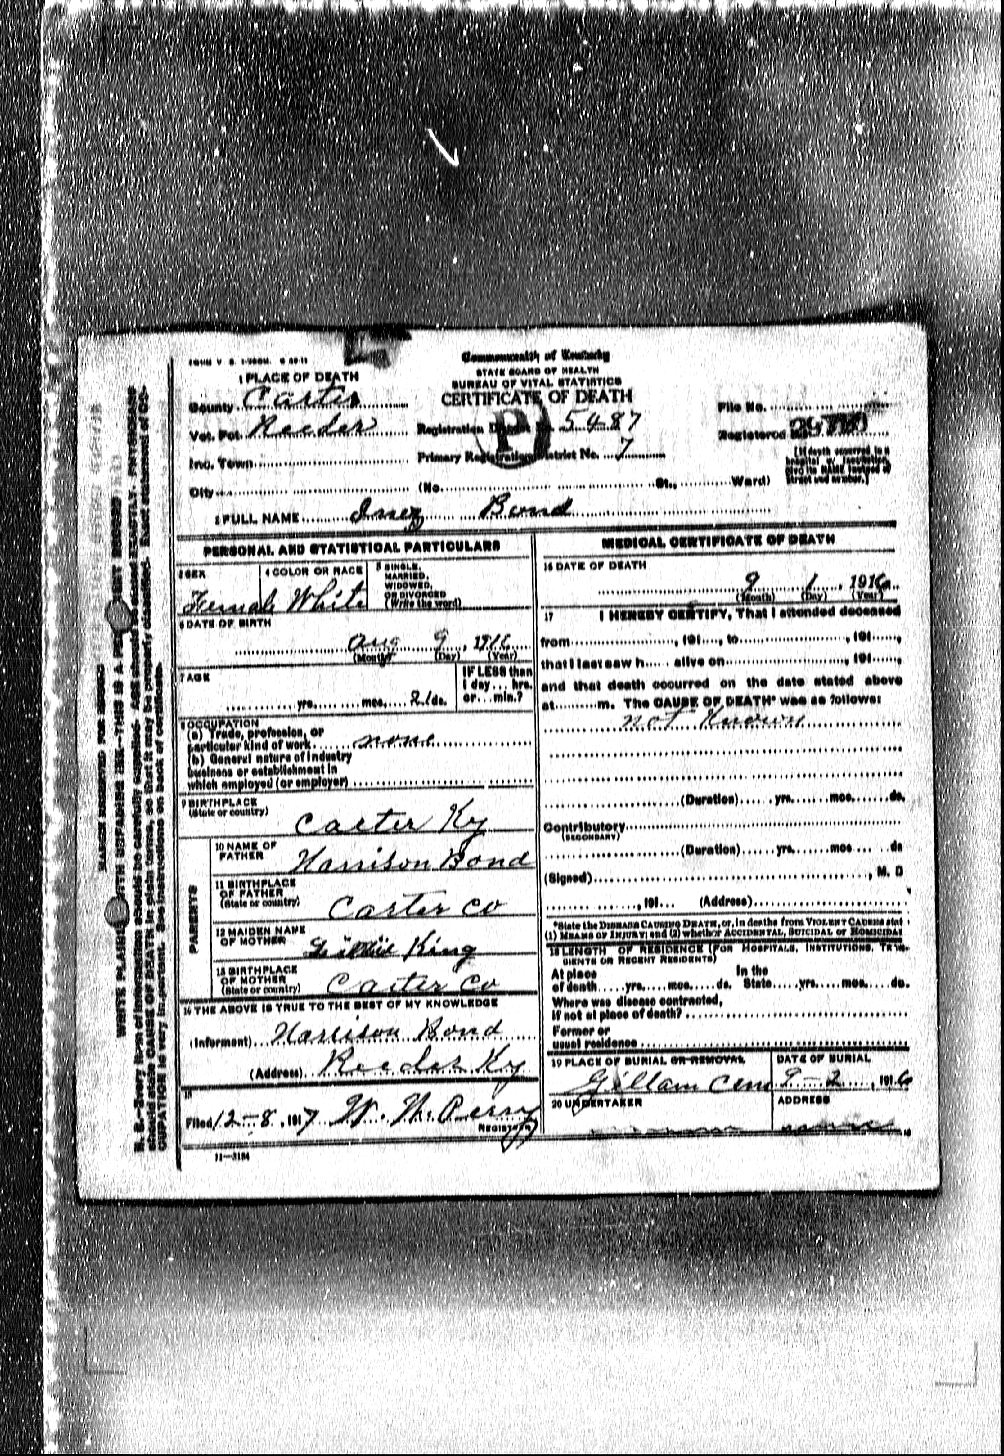 FORM V. S. 1-
Commonwealth of Kentucky
STATE BOARD OF HEALTH
BUREAU OF VITAL STATISTICS
CERTIFICATE OF DEATH
1 PLACE OF DEATH
County Carter
Vot. Pct. Reeder
Registration District No. 5487
File No.
Registered No.
Inc. Town
Primary Registration District No. 7
[If death occurred in a hospital or institution, give its NAME instead of street and number.]
City (No. St., Ward)
P
2 FULL NAME Inez Bond
PERSONAL AND STATISTICAL PARTICULARS
3 SEX Female
4 COLOR OR RACE White
5 SINGLE, MARRIED, WIDOWED, OR DIVORCED (Write the word)
6 DATE OF BIRTH
Aug 9, 1916
(Month) (Day) (Year)
7 AGE
yrs. mos. 21 ds.
IF LESS than 1 day... hrs. or... min.?
8 OCCUPATION
(a) Trade, profession, or particular kind of work none
(b) General nature of industry business or establishment in which employed (or employer)
9 BIRTHPLACE (State or country)
Carter Ky
PARENTS
10 NAME OF FATHER Harrison Bond
11 BIRTHPLACE OF FATHER (State or country) Carter Co
12 MAIDEN NAME OF MOTHER King
13 BIRTHPLACE OF MOTHER (State or country) Carter Co
14 THE ABOVE IS TRUE TO THE BEST OF MY KNOWLEDGE
(Informant) Harrison Bond
(Address) Reeder Ky
15
Filed 12-8, 1917 W. H. Perry
REGISTRAR
11—3184
MEDICAL CERTIFICATE OF DEATH
16 DATE OF DEATH
9 1, 1916
(Month) (Day) (Year)
17 I HEREBY CERTIFY, That I attended deceased
from , 191 , to , 191 ,
that I last saw h alive on , 191 ,
and that death occurred on the date stated above
at m. The CAUSE OF DEATH* was as follows:
not Known
(Duration) yrs. mos. ds.
Contributory
(SECONDARY)
(Duration) yrs. mos. ds
(Signed) , M. D
, 191 (Address)
*State the DISEASE CAUSING DEATH, or, in deaths from VIOLENT CAUSES stat
(1) MEANS OF INJURY; and (2) whether ACCIDENTAL, SUICIDAL or HOMICIDAL
18 LENGTH OF RESIDENCE (FOR HOSPITALS, INSTITUTIONS, TRANSIENTS OR RECENT RESIDENTS)
At place of death yrs. mos. ds. In the State yrs. mos. ds.
Where was disease contracted, if not at place of death?
Former or usual residence
19 PLACE OF BURIAL OR REMOVAL
Gillam Cem
DATE OF BURIAL
9-2, 1916
20 UNDERTAKER
ADDRESS
MARGIN RESERVED FOR BINDING
WRITE PLAINLY, WITH UNFADING INK—THIS IS A PERMANENT RECORD
N. B.—Every item of information should be carefully supplied. AGE should be stated EXACTLY. PHYSICIANS
should state CAUSE OF DEATH in plain terms, so that it may be properly classified. Exact statement of OC-
CUPATION is very important. See instructions on back of certificate.